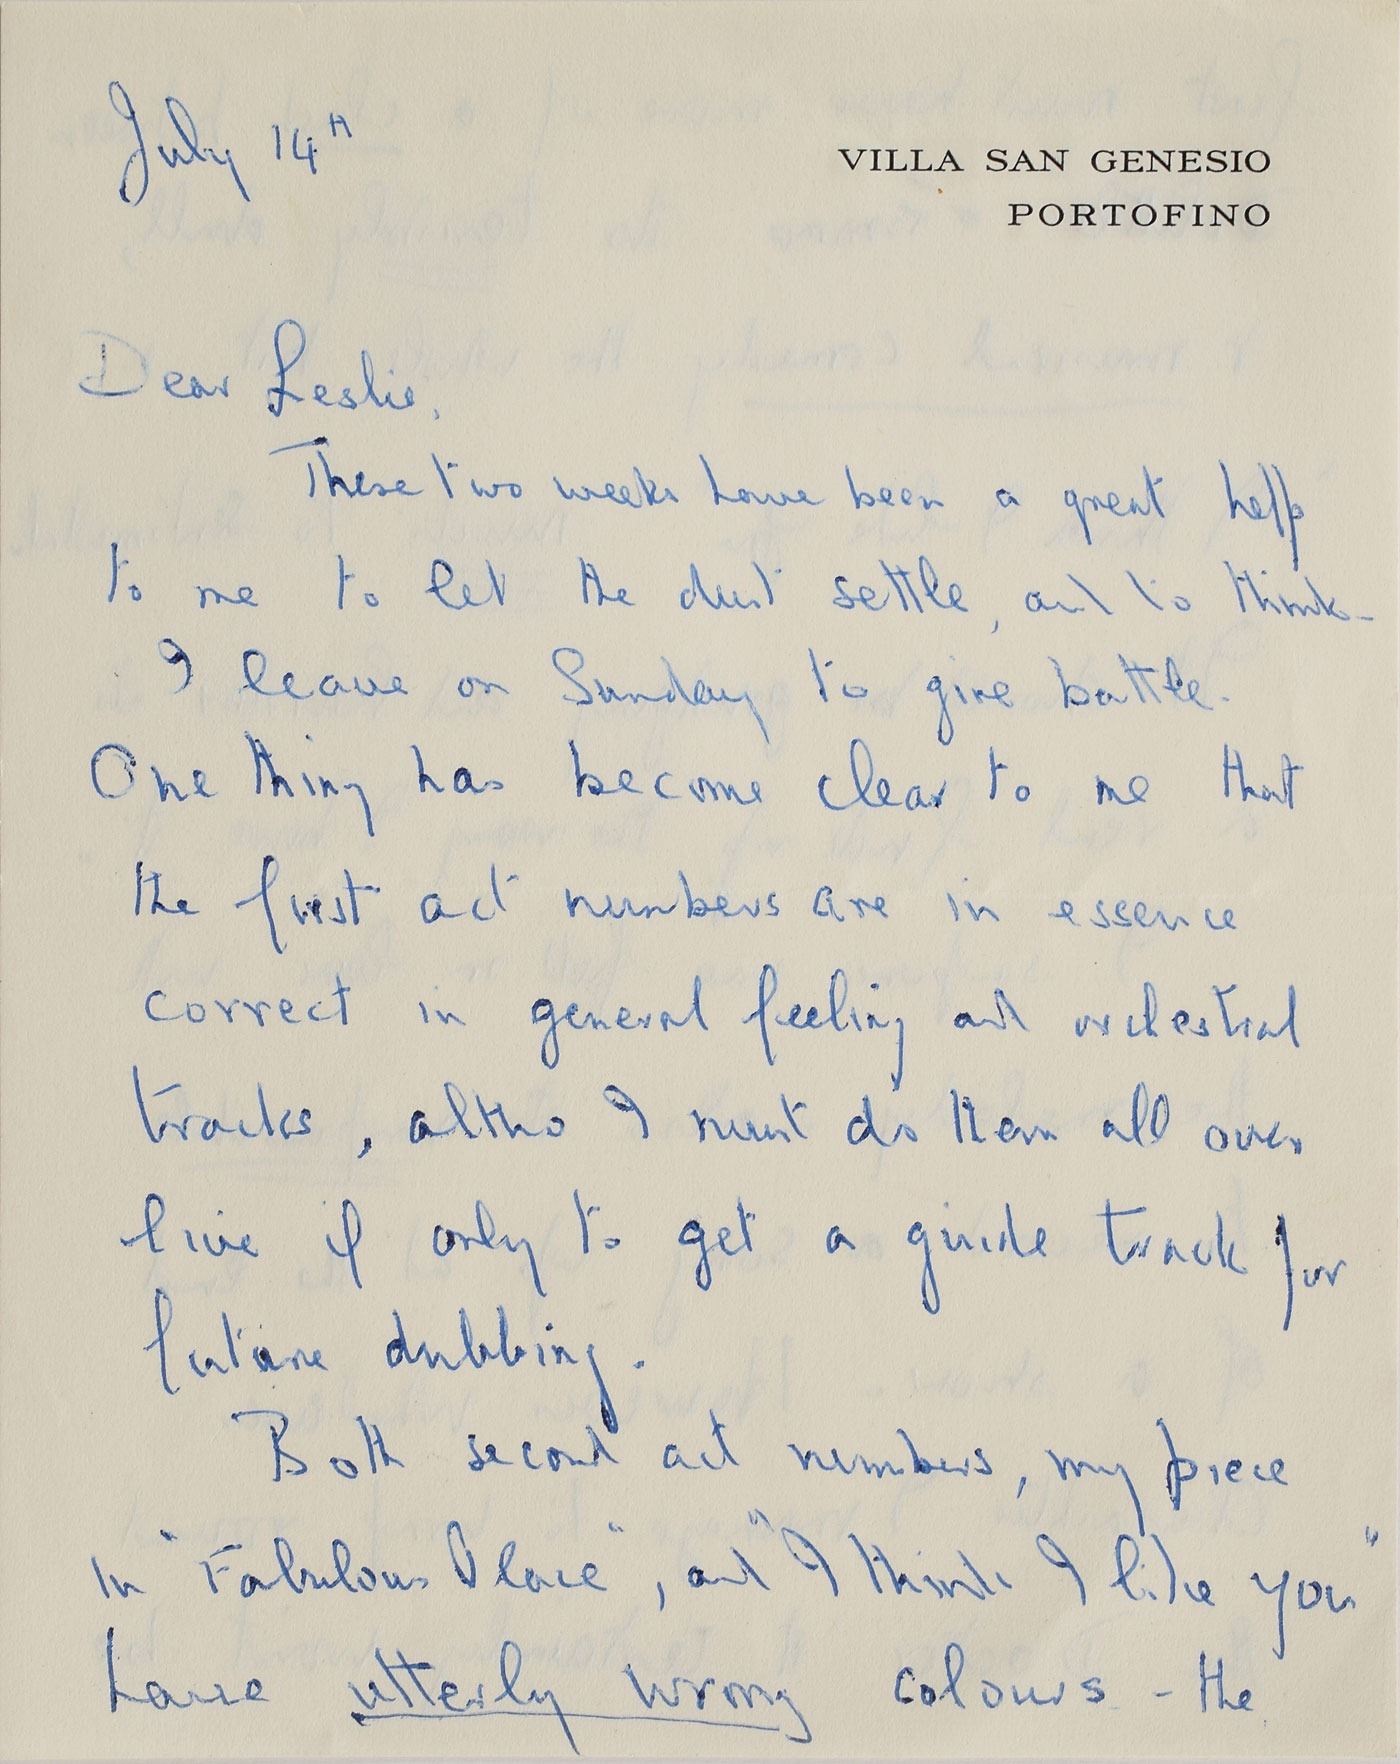 July 14th
VILLA SAN GENESIO
PORTOFINO
Dear Leslie,
These two weeks have been a great help
to me to let the dust settle, and to think–
I leave on Sunday to give battle.
One thing has become clear to me that
the first act numbers are in essence
correct in general feeling and orchestral
tracks, altho I must do them all over
live if only to get a guide track for
future dubbing.
Both second act numbers, my piece
in "Fabulous Place", and "I think I like you"
have utterly wrong colours – the